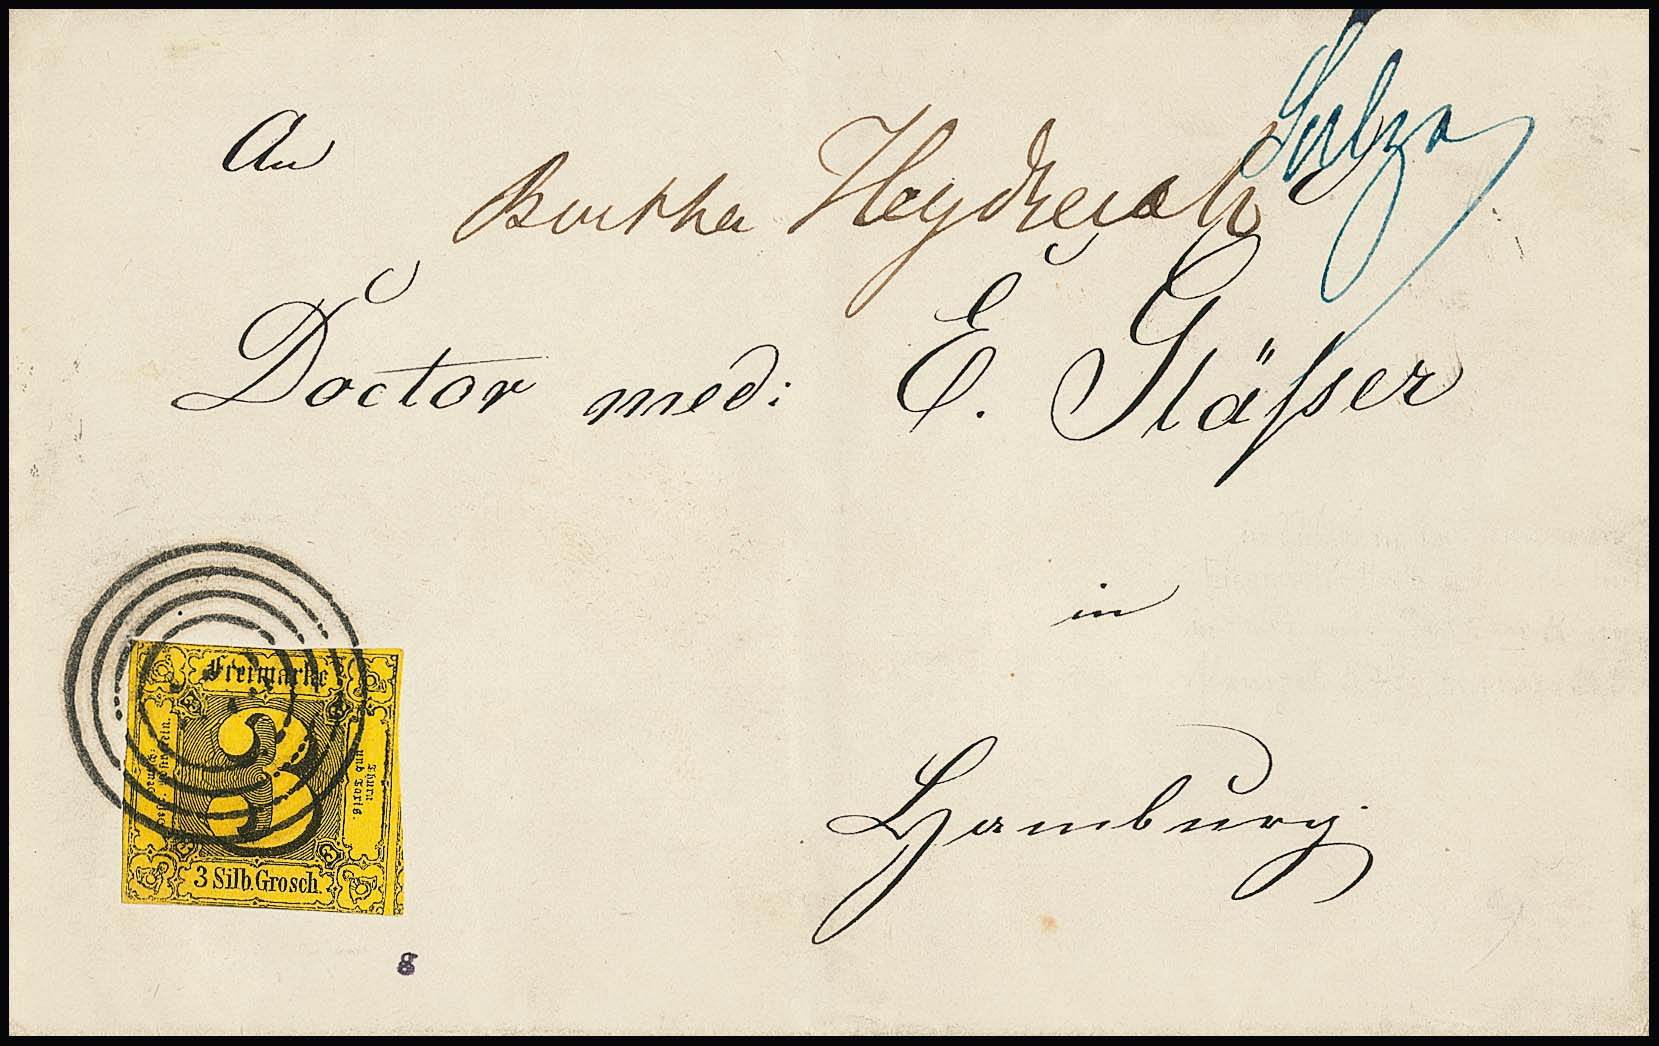 Sulza
An
Bertha Heydreich
Doctor med: E. Gläſser
in
Hamburg
Freimarke
und Taxis.
Thurn
3
3 Silb. Grosch.
g